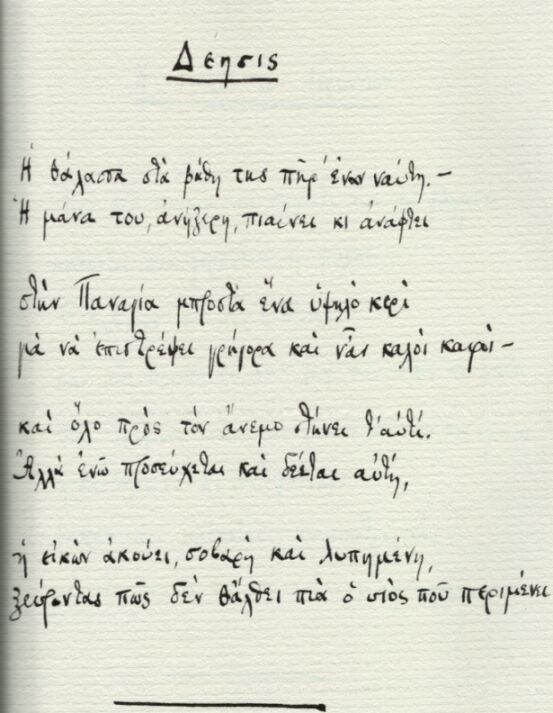 Δέησις
Ἡ θάλασσα στὰ βάθη της πῆρ' ἕναν ναύτη.—
Ἡ μάνα του, ἀνήξερη, πιαίνει κι ἀνάφτει
στὴν Παναγία μπροστὰ ἕνα ὑψηλὸ κερὶ
γιὰ νὰ ἐπιστρέψει γρήγορα καὶ νἆν καλοὶ καιροὶ —
καὶ ὅλο πρὸς τὸν ἄνεμο στήνει τ' αὐτί.
Ἀλλὰ ἐνῶ προσεύχεται καὶ δέεται αὐτή,
ἡ εἰκὼν ἀκούει, σοβαρὴ καὶ λυπημένη,
ξεύροντας πῶς δὲν θἄλθει πιὰ ὁ υἱὸς ποῦ περιμένει